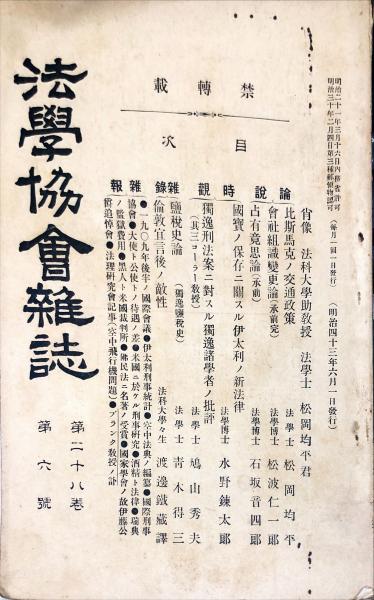 明治二十一年三月十六日內務省許可
明治三十年二月四日第三種郵便物認可
(每月一回一日發行)
(明治四十三年六月一日發行)
禁轉載
目次
肖像 法科大學助教授 法學士 松岡均平君
論說
比斯馬克ノ交通政策 法學士 松岡均平
會社組織變更論(承前完) 法學博士 松波仁一郎
占有竟思論(承前) 法學博士 石坂音四郎
時觀
國寶ノ保存ニ關スル伊太利ノ新法律 法學博士 水野鍊太郎
獨逸刑法案ニ對スル獨逸諸學者ノ批評
(其三コーラー教授) 法學士 鳩山秀夫
雜錄
鹽稅史論(獨逸鹽稅史) 法學士 靑木得三
倫敦宣言後ノ敵性 法科大學々生 渡邊鐵藏譯
雜報
●一九〇九年後半ノ國際會議●伊太利刑事統計●空中法典ノ編纂●國際刑事
協會●大使ト公使トノ待遇ノ差●米國ニ於ケル刑事硏究●酒精ト法律●瑞典
ノ監獄費用●黑人ト米國裁判所●佛民法ニ名著ノ受賞●國家學會ノ故伊藤公
爵追悼會●法理硏究會記事(空中飛行機問題)●プランク敎授ノ訃
法學協會雜誌
第二十八卷
第六號